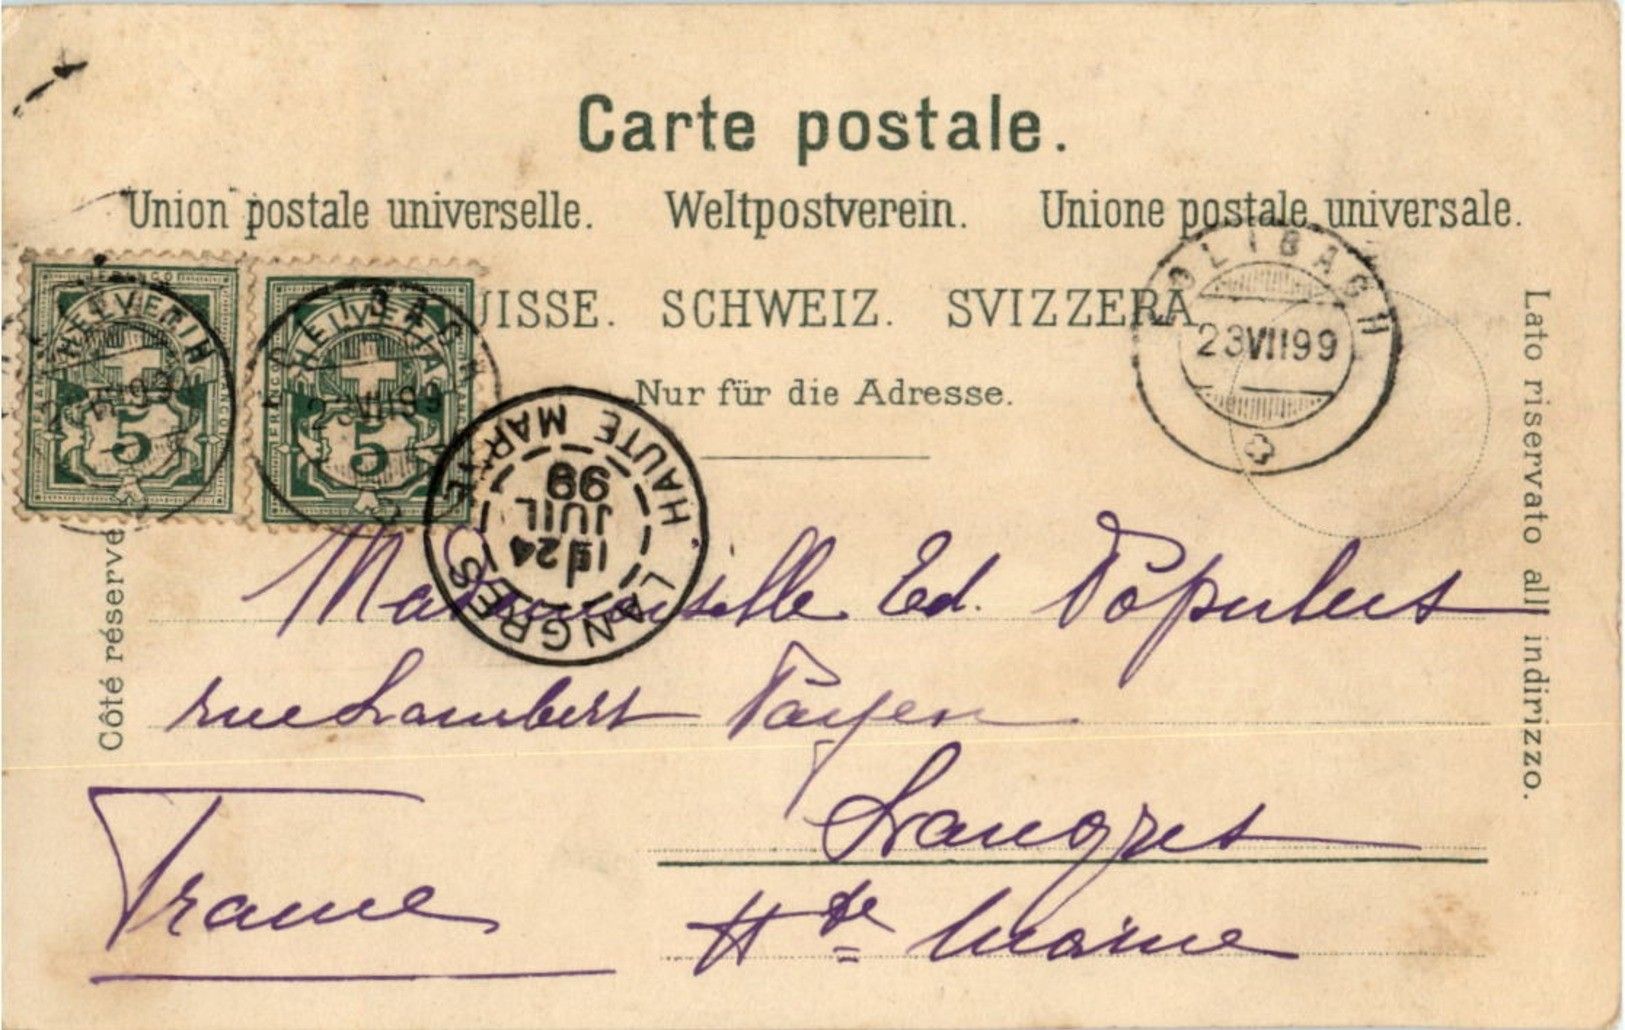 Carte postale.
Union postale universelle. Weltpostverein. Unione postale universale.
UISSE. SCHWEIZ. SVIZZERA
Nur für die Adresse.
HELVETIA
FRANCO
5
HELVETIA
FRANCO
5
23 VII 99
23 VII 99
LANGRES
HAUTE MARNE
1E
24
JUIL
99
Côté réservé
Lato riservato all indirizzo.
Mademoiselle Ed.
rue Lambert Payen
Langres
Hte Marne
France